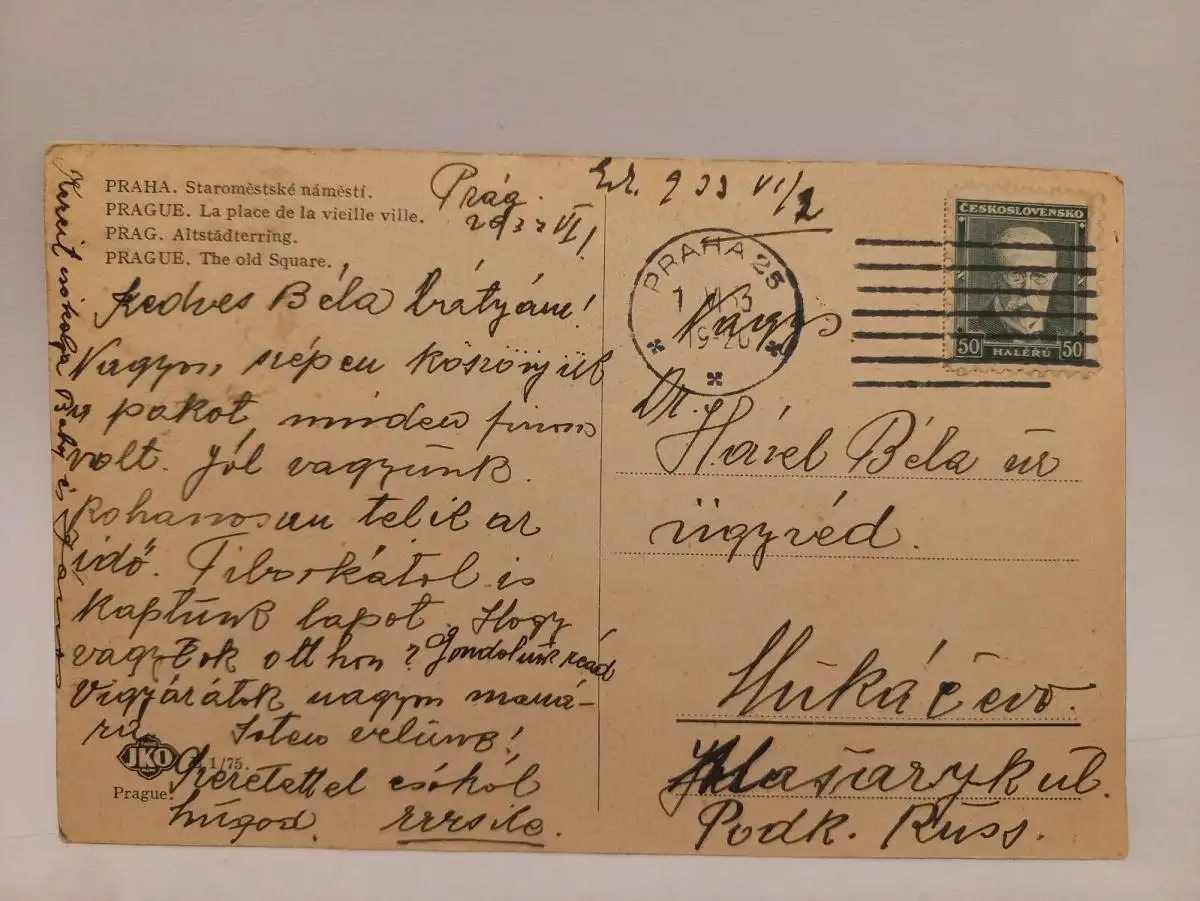 PRAHA. Staroměstské náměstí.
PRAGUE. La place de la vieille ville.
PRAG. Altstädterring.
PRAGUE. The old Square.
Prág.
VI
Kedves Béla bátyám!
Nagyon szépen köszönjük
a pakot, minden finom
volt. Jól vagyunk.
Rohanosan telik az
idő. Tiborkától is
kaptunk lapot. Hogy
vagytok otthon? Gondolunk reád
Vigyázátok nagyon mamá-
ra. Isten velünk!
Szeretettel csókol
húgod.
JKO
1/75.
Prague.
Kezeit csókolja Baby és
933 VI/2
PRAHA 25
19-20
ČESKOSLOVENSKO
50 HALÉŘŮ 50
Nagys
Dr. Hável Béla úr
ügyvéd.
Mukáčevo.
Masaryk ul.
Podk. Russ.